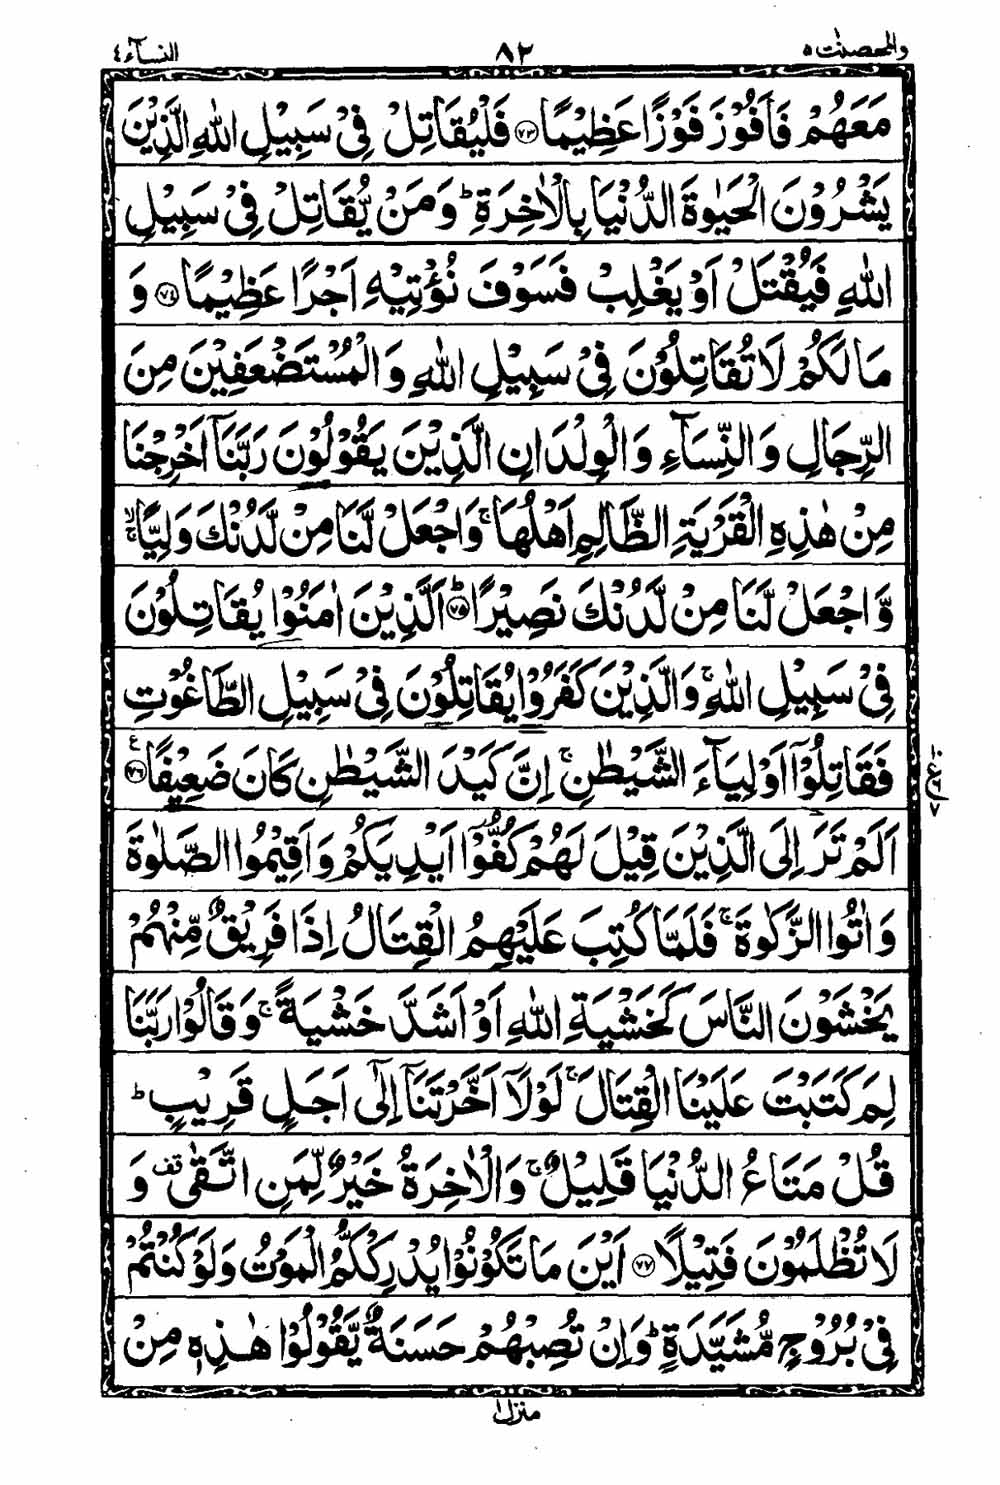 والمحصنٰت ٥ ٨٢ النسآء ٤
مَعَهُمْ فَاَفُوْزَ فَوْزًا عَظِيْمًا ﴿٧٣﴾ فَلْيُقَاتِلْ فِيْ سَبِيْلِ اللّٰهِ الَّذِيْنَ
يَشْرُوْنَ الْحَيٰوةَ الدُّنْيَا بِالْاٰخِرَةِ ؕ وَمَنْ يُّقَاتِلْ فِيْ سَبِيْلِ
اللّٰهِ فَيُقْتَلْ اَوْ يَغْلِبْ فَسَوْفَ نُؤْتِيْهِ اَجْرًا عَظِيْمًا ﴿٧٤﴾ وَ
مَا لَكُمْ لَا تُقَاتِلُوْنَ فِيْ سَبِيْلِ اللّٰهِ وَالْمُسْتَضْعَفِيْنَ مِنَ
الرِّجَالِ وَالنِّسَآءِ وَالْوِلْدَانِ الَّذِيْنَ يَقُوْلُوْنَ رَبَّنَاۤ اَخْرِجْنَا
مِنْ هٰذِهِ الْقَرْيَةِ الظَّالِمِ اَهْلُهَا ۚ وَاجْعَلْ لَّنَا مِنْ لَّدُنْكَ وَلِيًّا ۙۚ
وَّاجْعَلْ لَّنَا مِنْ لَّدُنْكَ نَصِيْرًا ؕ﴿٧٥﴾ اَلَّذِيْنَ اٰمَنُوْا يُقَاتِلُوْنَ
فِيْ سَبِيْلِ اللّٰهِ ۚ وَالَّذِيْنَ كَفَرُوْا يُقَاتِلُوْنَ فِيْ سَبِيْلِ الطَّاغُوْتِ
فَقَاتِلُوْۤا اَوْلِيَآءَ الشَّيْطٰنِ ۚ اِنَّ كَيْدَ الشَّيْطٰنِ كَانَ ضَعِيْفًا ﴿٧٦﴾ ع
اَلَمْ تَرَ اِلَى الَّذِيْنَ قِيْلَ لَهُمْ كُفُّوْۤا اَيْدِيَكُمْ وَاَقِيْمُوا الصَّلٰوةَ
وَاٰتُوا الزَّكٰوةَ ۚ فَلَمَّا كُتِبَ عَلَيْهِمُ الْقِتَالُ اِذَا فَرِيْقٌ مِّنْهُمْ
يَخْشَوْنَ النَّاسَ كَخَشْيَةِ اللّٰهِ اَوْ اَشَدَّ خَشْيَةً ۚ وَقَالُوْا رَبَّنَا
لِمَ كَتَبْتَ عَلَيْنَا الْقِتَالَ ۚ لَوْلَاۤ اَخَّرْتَنَاۤ اِلٰۤى اَجَلٍ قَرِيْبٍ ؕ
قُلْ مَتَاعُ الدُّنْيَا قَلِيْلٌ ۚ وَالْاٰخِرَةُ خَيْرٌ لِّمَنِ اتَّقٰى قف وَ
لَا تُظْلَمُوْنَ فَتِيْلًا ﴿٧٧﴾ اَيْنَ مَا تَكُوْنُوْا يُدْرِكْكُّمُ الْمَوْتُ وَلَوْ كُنْتُمْ
فِيْ بُرُوْجٍ مُّشَيَّدَةٍ ؕ وَاِنْ تُصِبْهُمْ حَسَنَةٌ يَّقُوْلُوْا هٰذِهٖ مِنْ
منزل ١